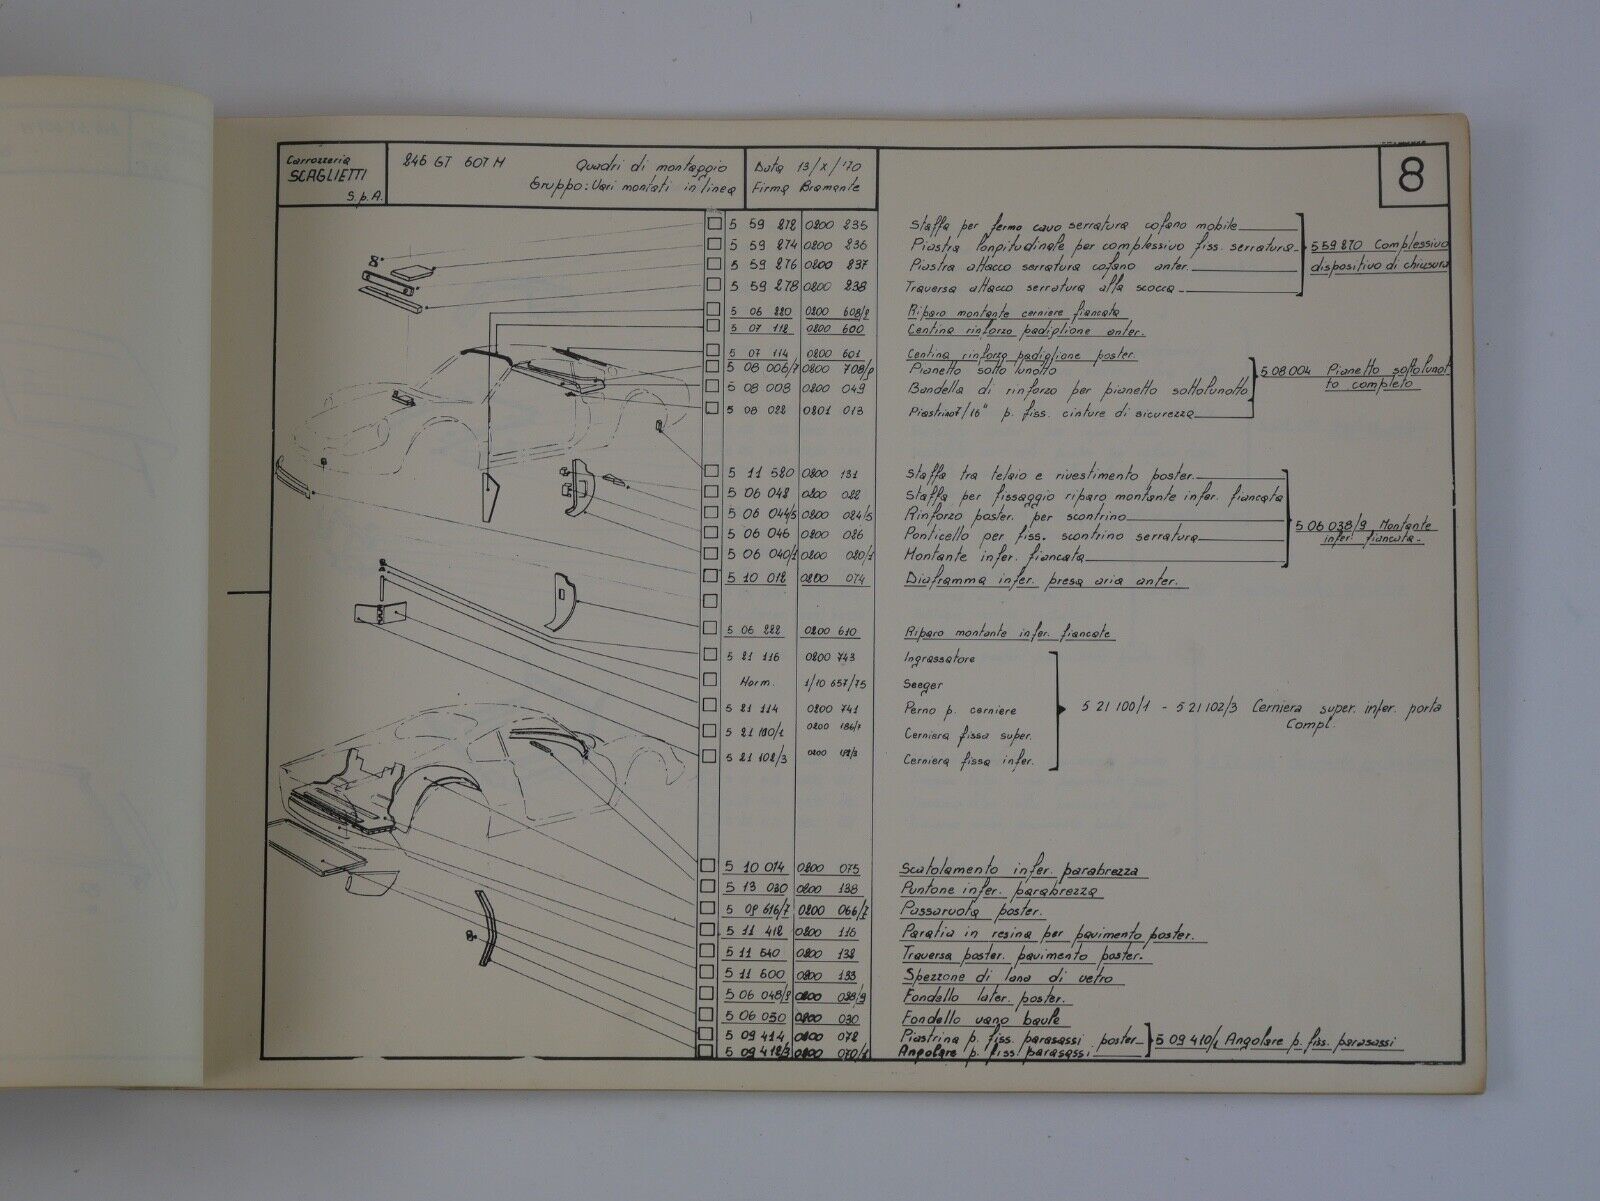 Carrozzeria
SCAGLIETTI
S.p.A.
246 GT 607 M
Quadri di montaggio
Gruppo: Vari montati in linea
Data 13/X/'70
Firma Bramante
8
5 59 272 0200 235 Staffa per fermo cavo serratura cofano mobile
5 59 274 0200 236 Piastra longitudinale per complessivo fiss. serratura
5 59 270 Complessivo
5 59 276 0200 237 Piastra attacco serratura cofano anter.
dispositivo di chiusura
5 59 278 0200 238 Traversa attacco serratura alla scocca
5 06 220 0200 608/2 Riparo montante cerniere fiancata
5 07 112 0200 600 Centina rinforzo padiglione anter.
5 07 114 0200 601 Centina rinforzo padiglione poster.
5 08 006/7 0200 708/9 Pianetto sotto lunotto
5 08 004 Pianetto sottolunot
to completo
5 08 008 0200 049 Bandella di rinforzo per pianetto sottolunotto
5 08 022 0201 013 Piastrino 7/16" p. fiss. cinture di sicurezza
5 11 520 0200 131 Staffa tra telaio e rivestimento poster.
5 06 042 0200 022 Staffa per fissaggio riparo montante infer. fiancata
5 06 044/5 0200 024/5 Rinforzo poster. per scontrino
5 06 038/9 Montante
infer. fiancata
5 06 046 0200 026 Ponticello per fiss. scontrino serratura
5 06 040/1 0200 020/1 Montante infer. fiancata
5 10 012 0200 074 Diaframma infer. presa aria anter.
5 06 222 0200 610 Riparo montante infer. fiancate
5 21 116 0200 743 Ingrassatore
Norm. 1/10 657/75 Seeger
5 21 114 0200 741 Perno p. cerniere
5 21 100/1 - 5 21 102/3 Cerniera super. infer. porta
Compl.
5 21 100/1 0200 186/7 Cerniera fissa super.
5 21 102/3 0200 Cerniera fissa infer.
5 10 014 0200 075 Scatolamento infer. parabrezza
5 13 030 0200 138 Puntone infer. parabrezza
5 09 616/7 0200 066/7 Passaruota poster.
5 11 412 0200 116 Paratia in resina per pavimento poster.
5 11 540 0200 132 Traversa poster. pavimento poster.
5 11 600 0200 133 Spezzone di lana di vetro
5 06 048/9 0200 028/9 Fondello later. poster.
5 06 050 0200 030 Fondello vano baule
5 09 414 0200 072 Piastrina p. fiss. parasassi poster.
5 09 410/1 Angolare p. fiss. parasassi
5 09 412/3 0200 070/1 Angolare p. fiss. parasassi